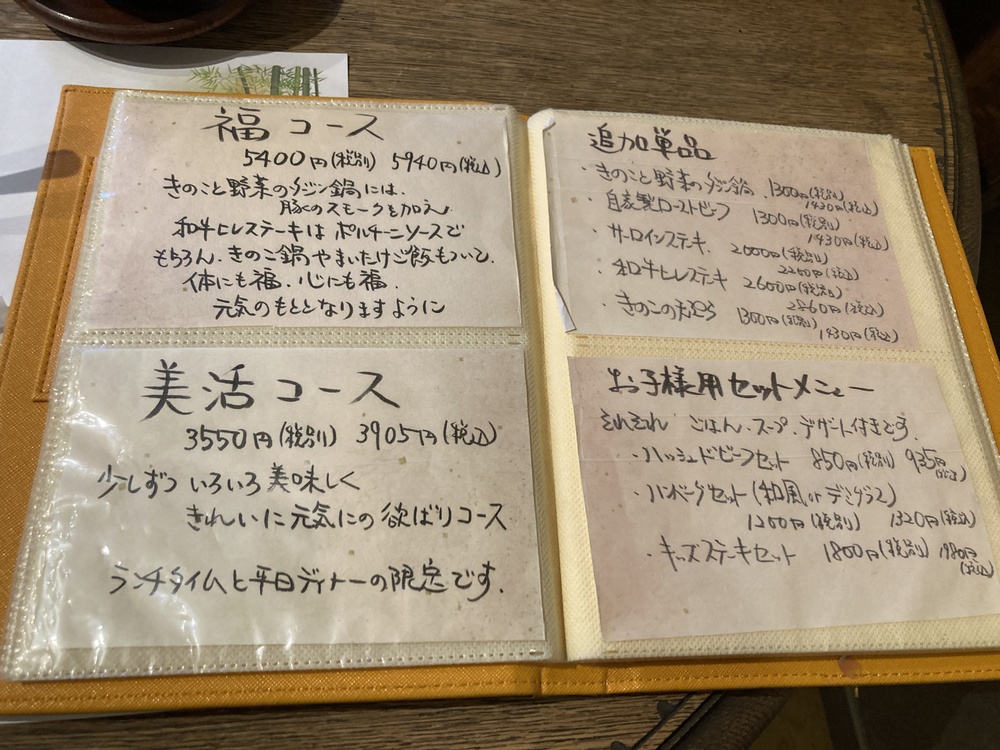 福コース
5400円(税別) 5940円(税込)
きのこと野菜のタジン鍋には、
豚のスモークを加え
和牛ヒレステーキは ポルチーニソースで
もちろん、きのこ鍋やまいたけご飯もついて、
体にも福、心にも福、
元気のもととなりますように
美活コース
3550円(税別) 3905円(税込)
少しずつ いろいろ 美味しく
きれいに元気にの 欲ばりコース
ランチタイムと平日ディナーの限定です.
追加単品
・きのこと野菜のタジン鍋 1300円(税別)
1430円(税込)
・自家製ローストビーフ 1300円(税別)
1430円(税込)
・サーロインステーキ 2000円(税別)
2200円(税込)
・和牛ヒレステーキ 2600円(税別)
2860円(税込)
・きのこの天ぷら 1300円(税別)
1430円(税込)
お子様用セットメニュー
それぞれ ごはん、スープ、デザート付きです.
・ハッシュドビーフセット 850円(税別) 935円(税込)
・ハンバーグセット(和風 or デミグラス)
1200円(税別) 1320円(税込)
・キッズステーキセット 1800円(税別) 1980円
(税込)